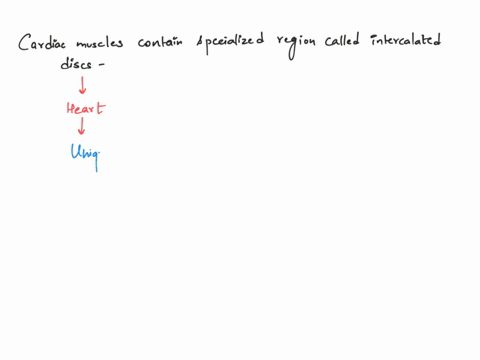 Cardiac muscles contain specialized region called intercalated
discs -
Heart
Uniq